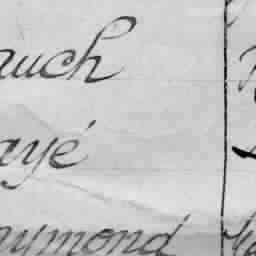 auch
ayé
aymond